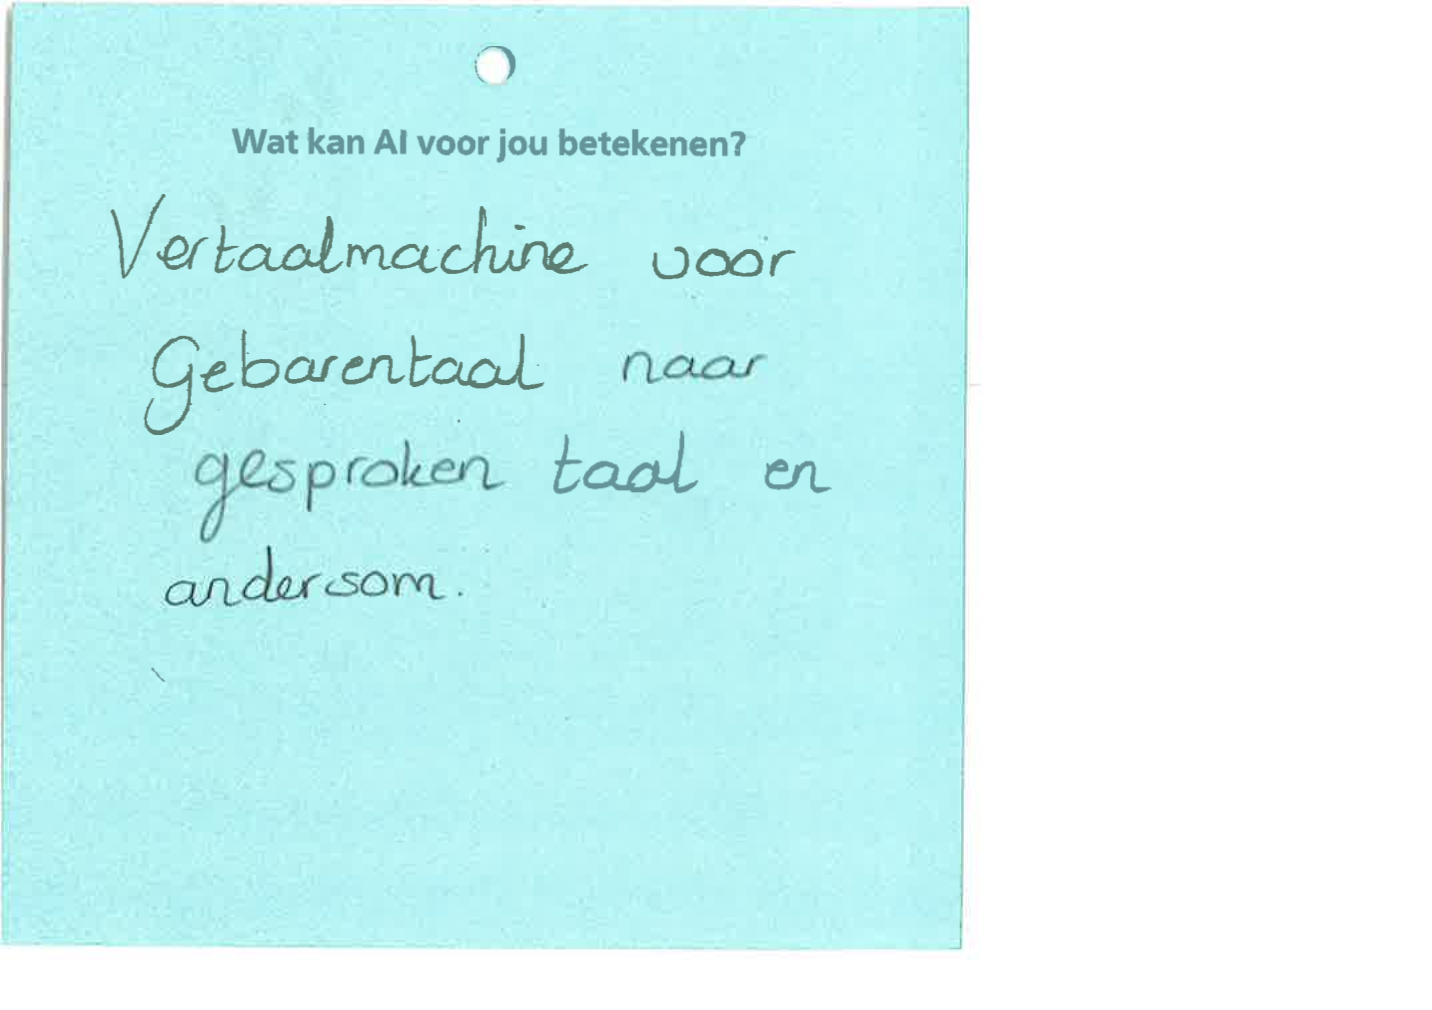 Wat kan AI voor jou betekenen?
Vertaalmachine voor
Gebarentaal naar
gesproken taal en
andersom.